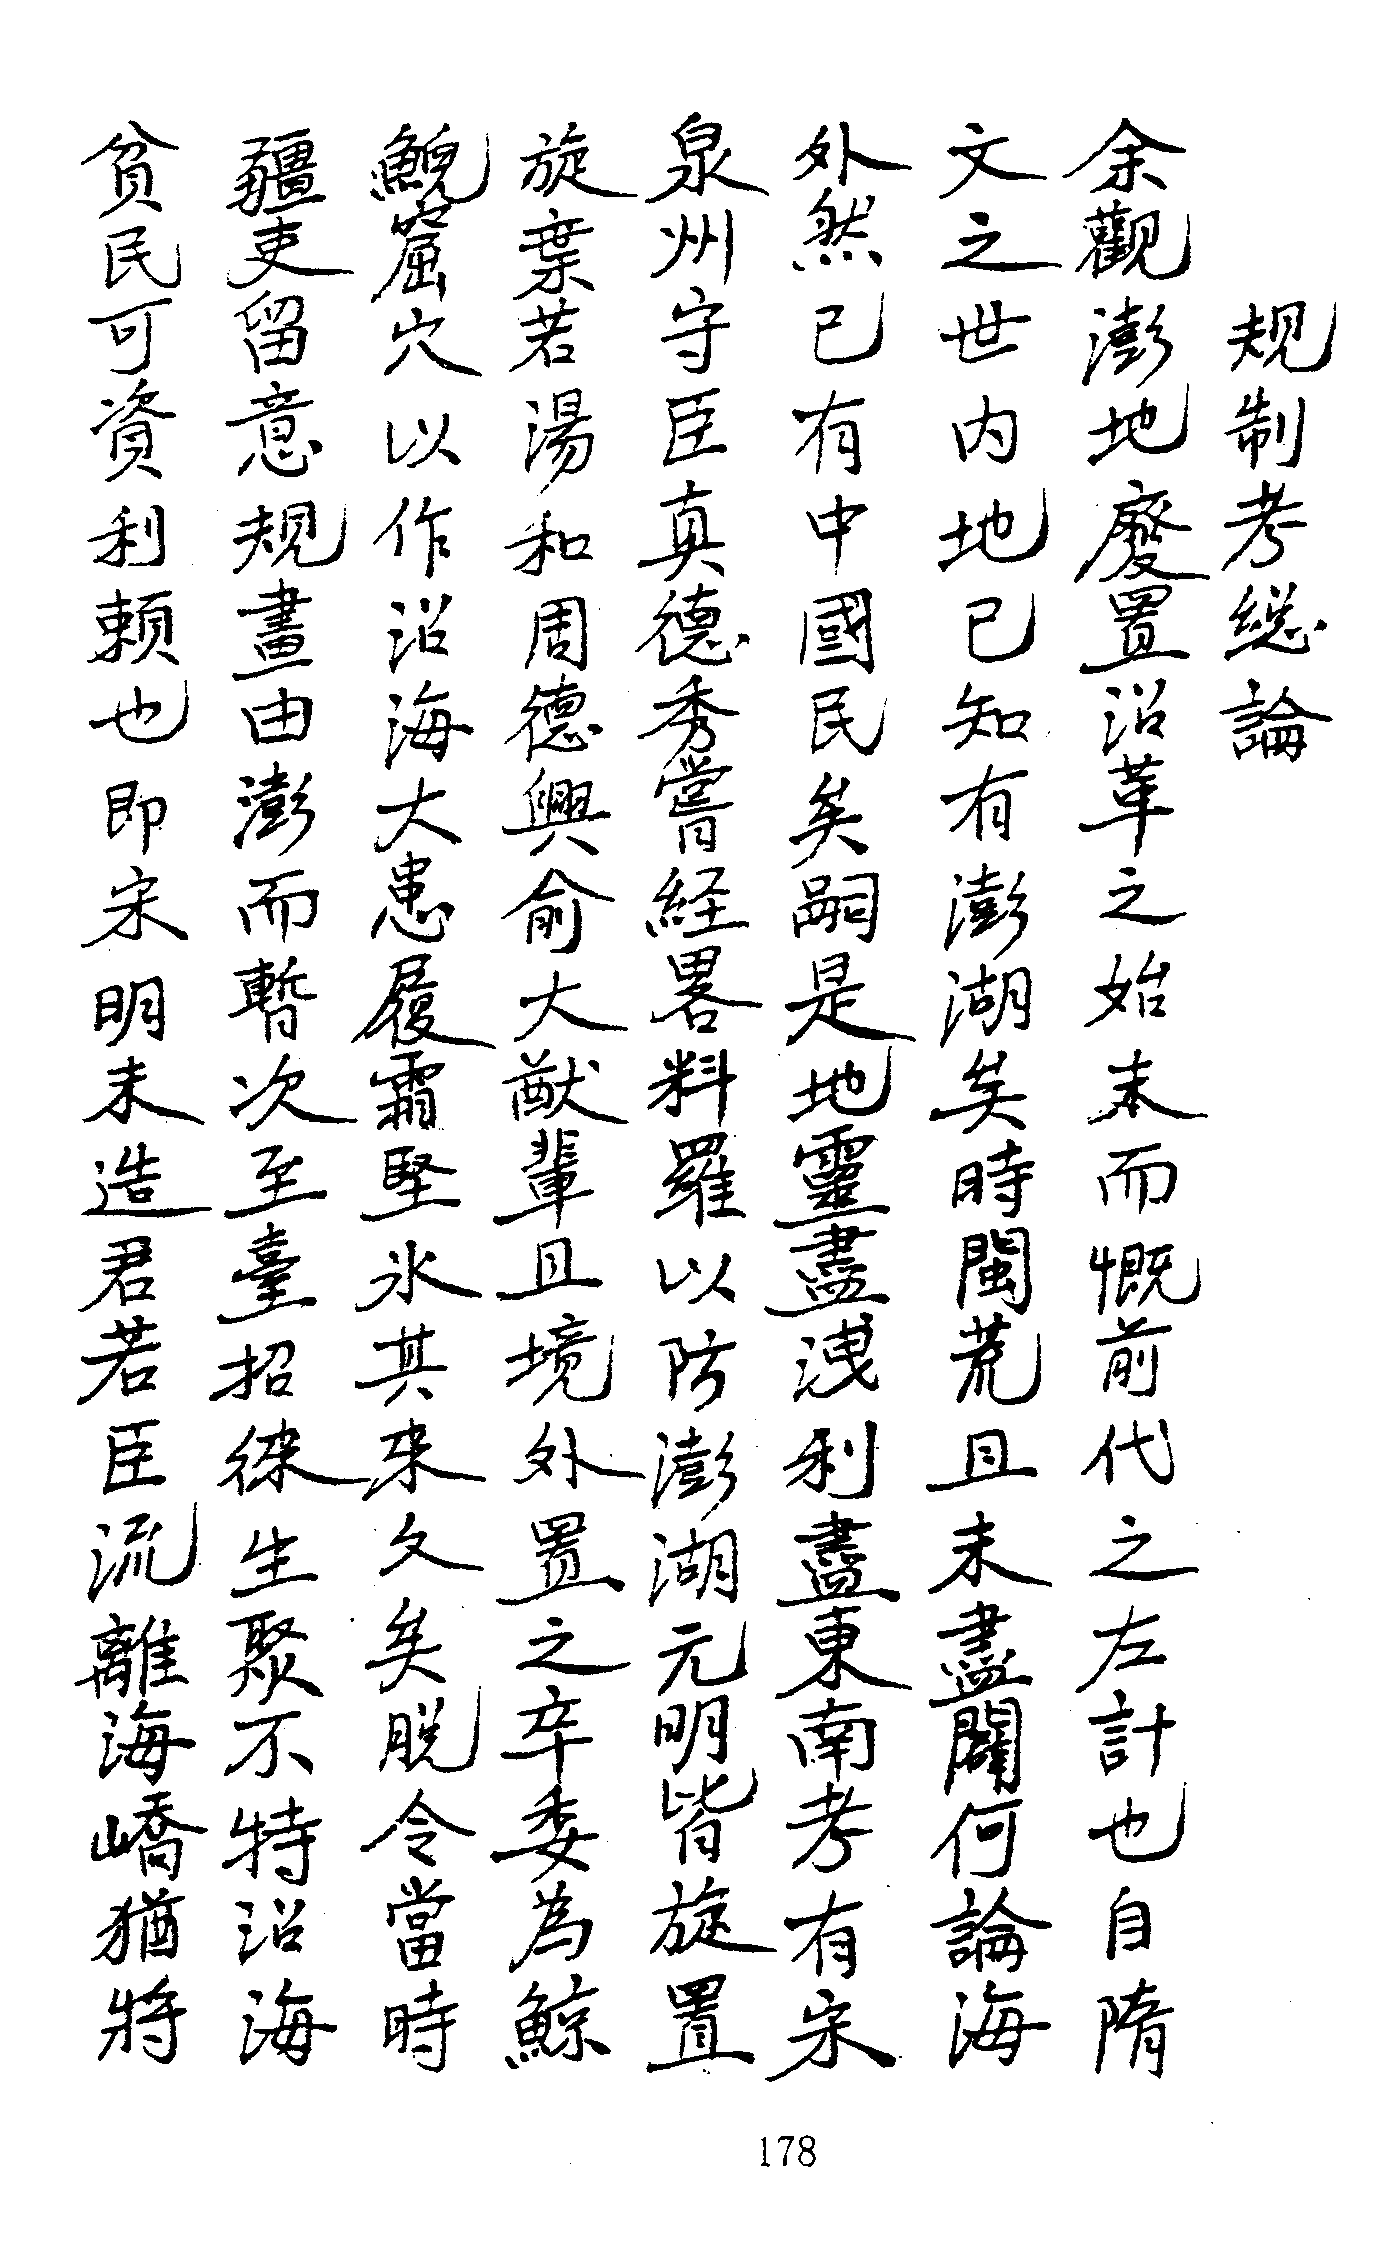 规制考総論
余觀澎地廢置沿革之始末而慨前代之左計也自隋
文之世内地已知有澎湖矣時閩荒且未盡闢何論海
外然已有中國民矣嗣是地靈盡洩利盡東南考有宋
泉州守臣真德秀嘗経畧料羅以防澎湖元明皆旋置
旋棄若湯和周德興俞大猷輩且境外置之卒委為鯨
鯢窟穴以作沿海大患履霜堅氷其来久矣脱令當時
疆吏留意规畫由澎而暫次至臺招徠生聚不特沿海
貧民可資利頼也即宋明末造君若臣流離海嶠猶將
178